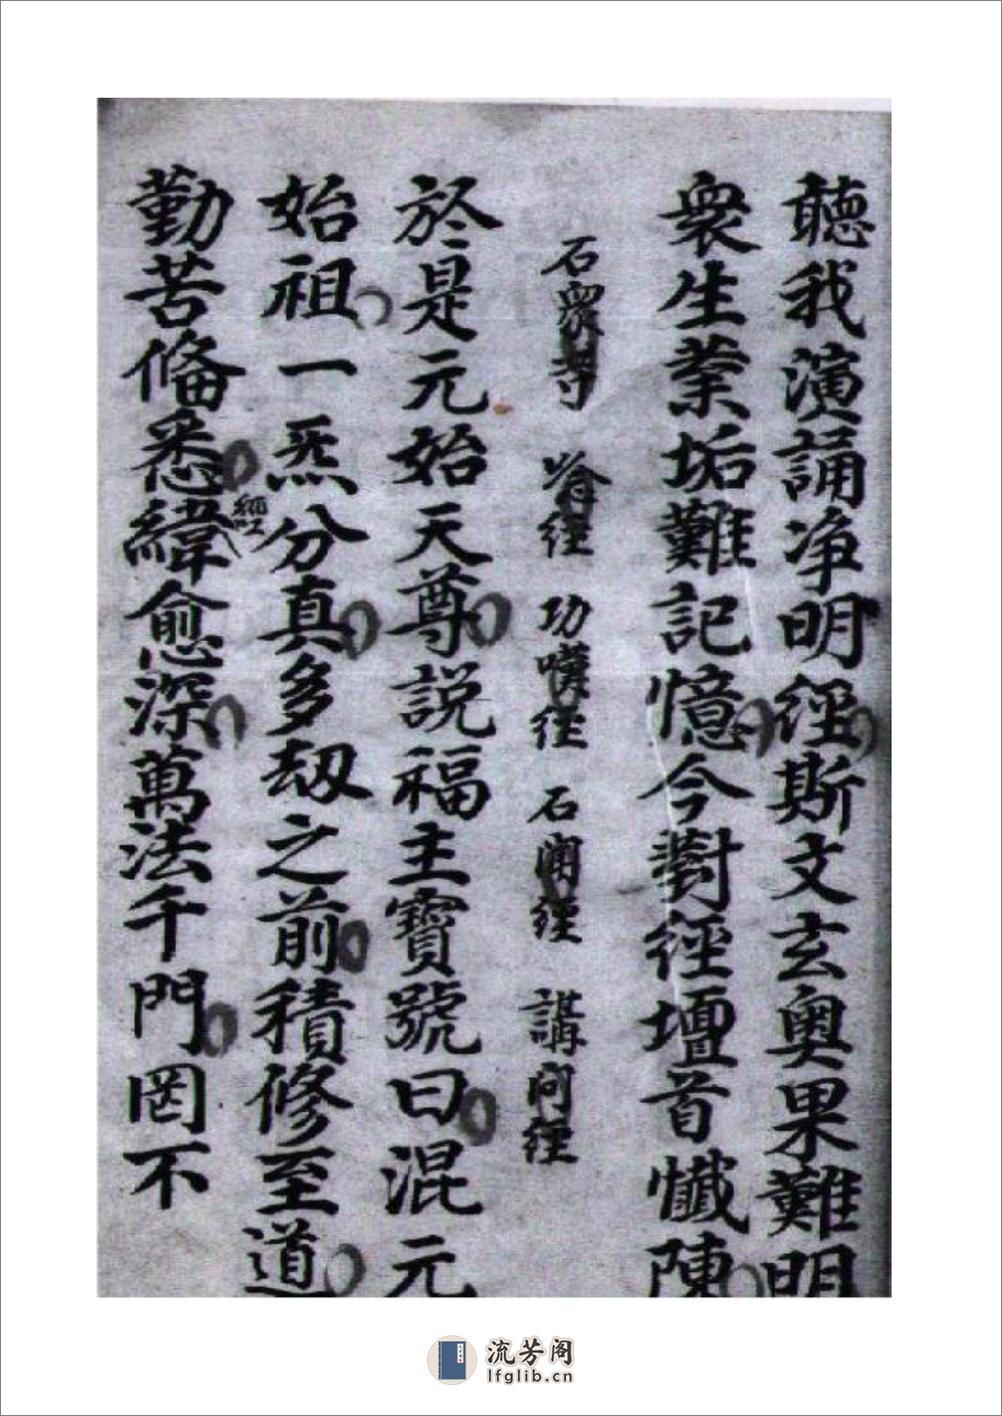 聴我演誦净明經斯文玄奥果難明
衆生業垢難記憶今對經壇首懺陳
石 經 功 經 石 經 講 經
於是元始天尊説福主寶號曰混元
始祖一炁分真多劫之前積修至道
勤苦俻悉緯愈深萬法千門罔不
經
流芳阁
lfglib.cn